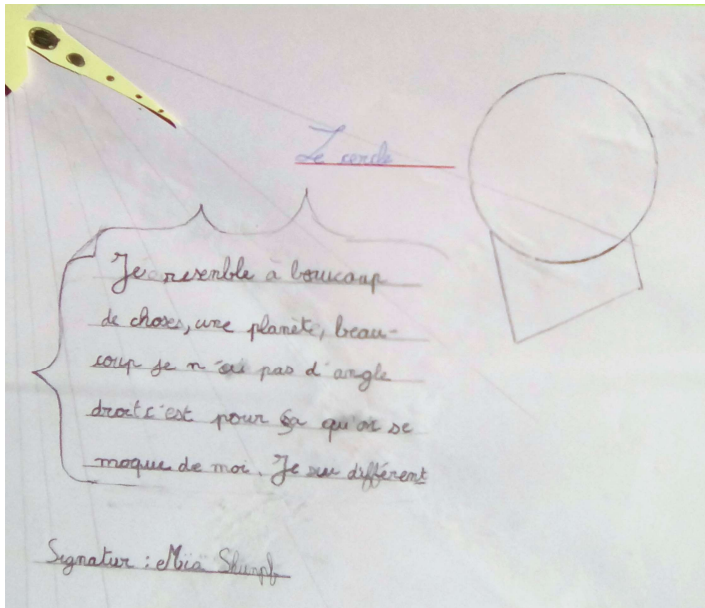 Le cercle
Je resenble à boucoup
de choses, une planète, beau-
coup je n'ai pas d'angle
droit c'est pour ça qu'on se
moque de moi. Je sui différent
Signatur : Mïa